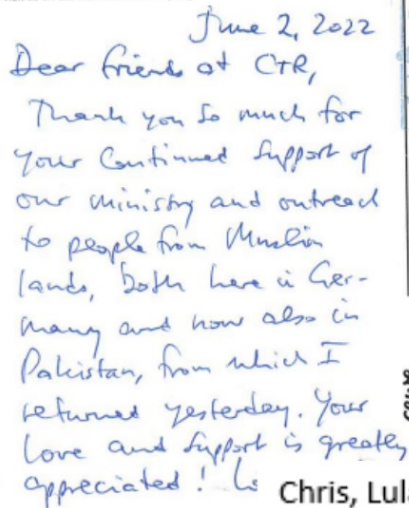 June 2, 2022
Dear friends at CTR,
Thank you so much for
your continued support of
our ministry and outreach
to people from Muslim
lands, both here in Ger-
many and now also in
Pakistan, from which I
returned yesterday. Your
love and support is greatly
appreciated!
Chris, Lula